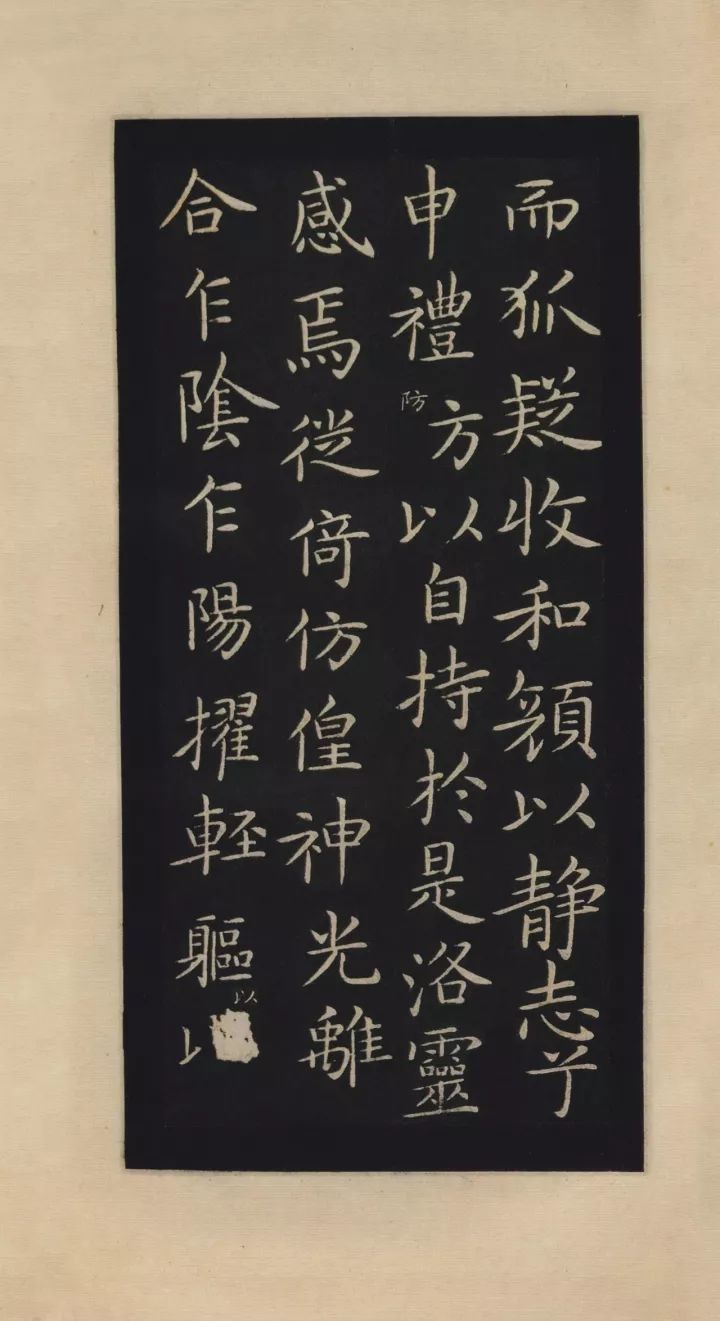 而狐疑收和顏以静志兮
申禮防方以自持於是洛靈
感焉徙倚仿偟神光離
合乍陰乍陽擢輕軀以